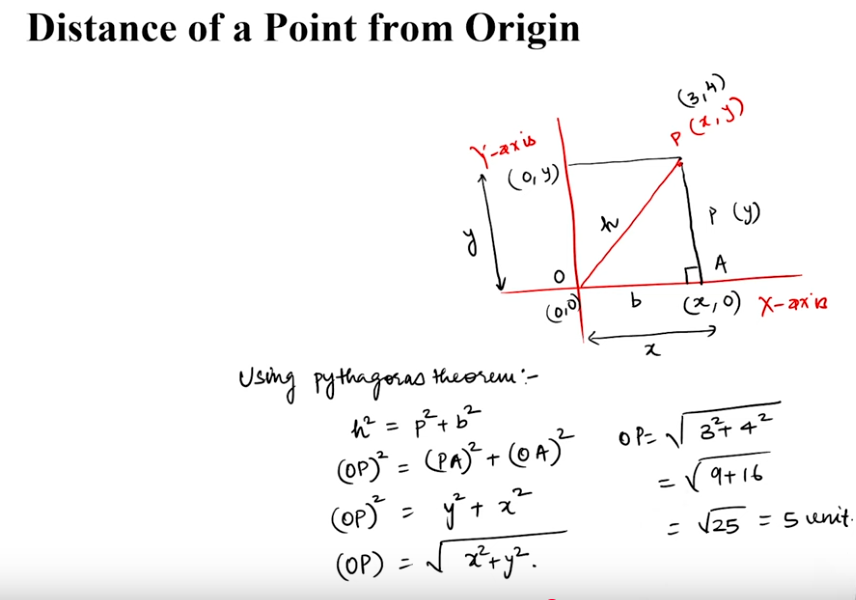 Distance of a Point from Origin
(3,4)
P (x,y)
Y-axis
(0,y)
h
P (y)
y
O
A
(0,0)
b
(x,0)
X-axis
x
Using pythagoras theorem:-
h² = p² + b²
(OP)² = (PA)² + (OA)²
(OP)² = y² + x²
(OP) = √x²+y².
OP = √3²+4²
= √9+16
= √25 = 5 unit.